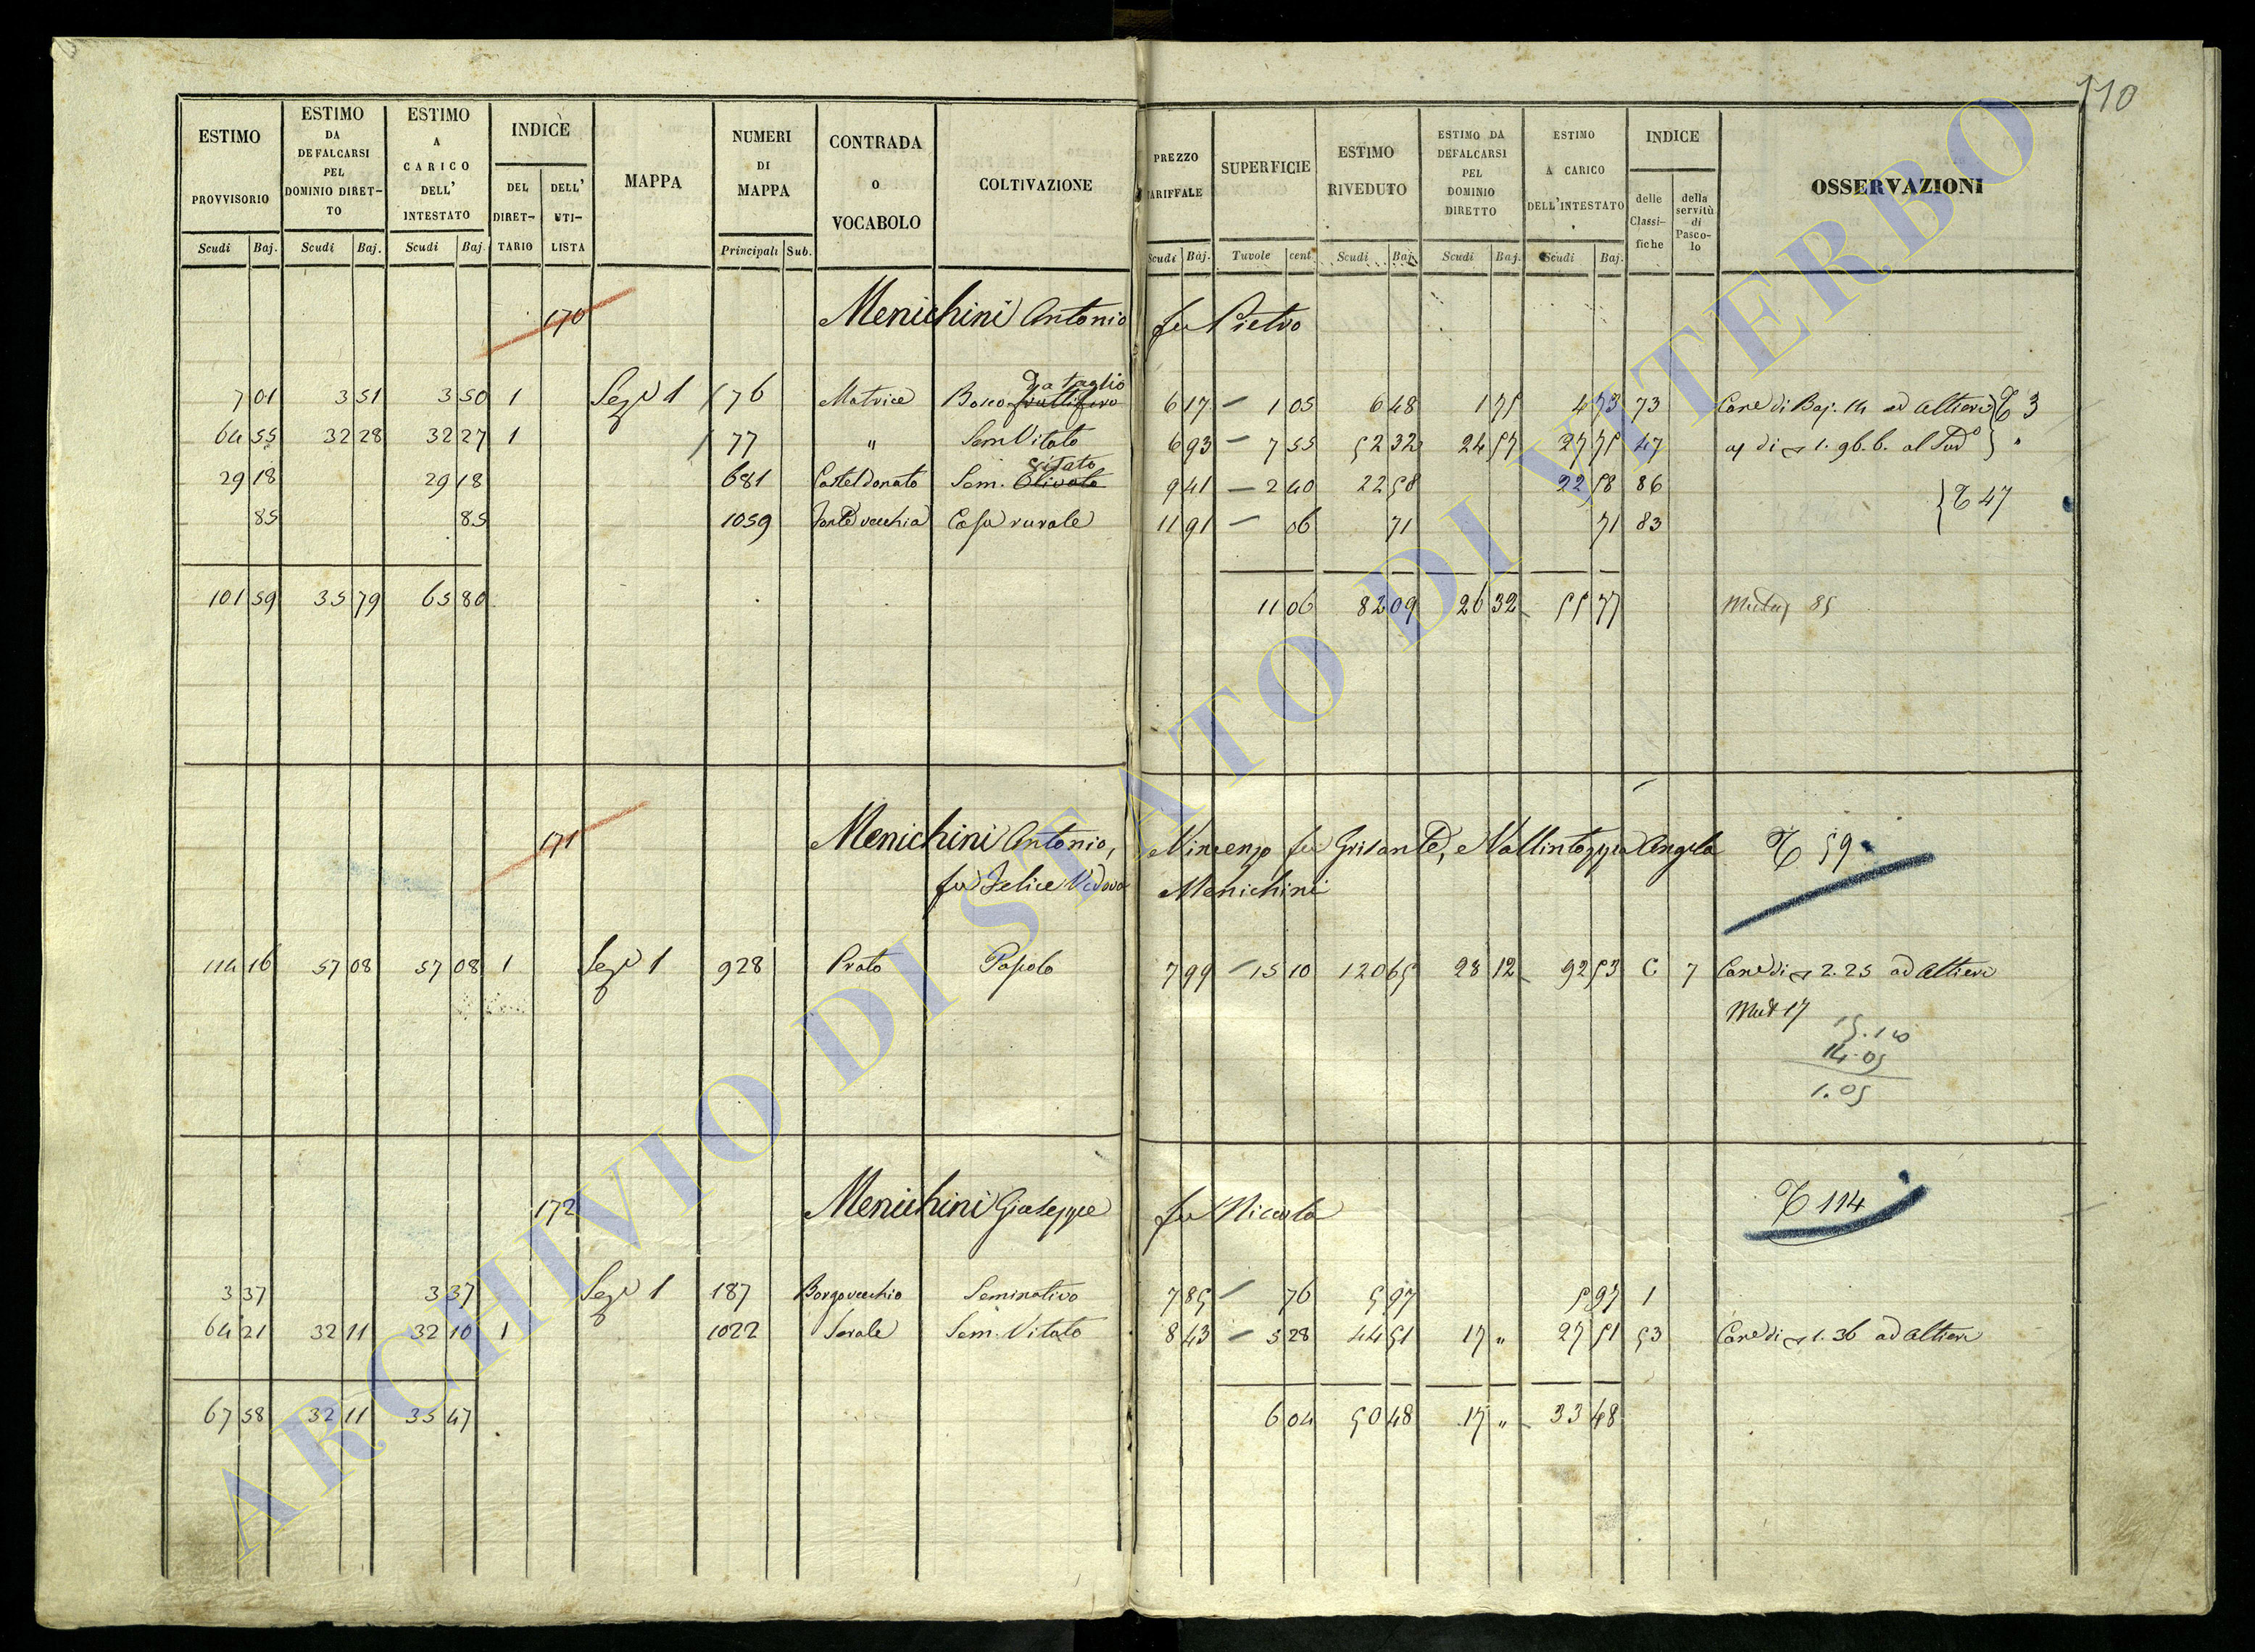 110
ESTIMO PROVVISORIO
ESTIMO DA DEFALCARSI PEL DOMINIO DIRET-TO
ESTIMO A CARICO DELL' INTESTATO
INDICE
DEL DIRET-TARIO
DELL' UTI-LISTA
MAPPA
NUMERI DI MAPPA
CONTRADA o VOCABOLO
COLTIVAZIONE
PREZZO TARIFFALE
SUPERFICIE
ESTIMO RIVEDUTO
ESTIMO DA DEFALCARSI PEL DOMINIO DIRETTO
ESTIMO A CARICO DELL'INTESTATO
INDICE
delle Classi-fiche
della servitù di Pasco-lo
OSSERVAZIONI
Scudi Baj. Scudi Baj. Scudi Baj. Principali Sub. Scudi Baj. Tavole cent. Scudi Baj. Scudi Baj. Scudi Baj.
170 Menichini Antonio fu Pietro
7 01 3 51 3 50 1 Sez. 1 76 Matrice Bosco fruttifero da taglio 6 17 – 1 05 6 48 1 75 4 73 73 Cane di Baj. 14 ad Altieri T 3
64 55 32 28 32 27 1 77 " Sem Vitato 6 93 – 7 55 52 32 24 57 27 75 47 1.96. al Sud°
29 18 29 18 681 Casteldonato Sem. Olivato vitato 9 41 – 2 40 22 58 22 58 86 T 47
85 85 1059 Fonte vecchia Casa rurale 11 91 – 06 71 71 83
101 59 35 79 65 80 11 06 82 09 26 32 55 77 85
171 Menichini Antonio, Vincenzo fu Grisante, e Vallintoppia Angela T 59
fu Felice Vedova Menichini
114 16 57 08 57 08 1 Sez. 1 928 Prato Pascolo 7 99 – 15 10 120 65 28 12 92 53 C 7 Cane di 2.25 ad Altieri
Mut 17
15.10
14.05
1.05
172 Menichini Giuseppe fu Nicola T 114
3 37 3 37 Sez. 1 187 Borgovecchio Seminativo 7 85 – 76 5 97 5 97 1
64 21 32 11 32 10 1 1022 Serale Sem. Vitato 8 43 – 5 28 44 51 17 " 27 51 53 Cane di 1.36 ad Altieri
67 58 32 11 35 47 6 04 50 48 17 " 33 48
ARCHIVIO DI STATO DI VITERBO